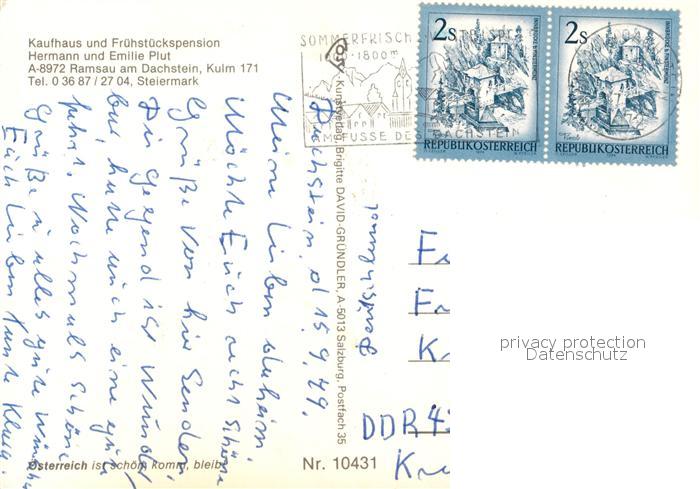 Kaufhaus und Frühstückspension
Hermann und Emilie Plut
A-8972 Ramsau am Dachstein, Kulm 171
Tel. 0 36 87 / 27 04, Steiermark
SOMMERFRISCHE
1800m
AM FUSSE DES
DACHSTEIN
2s
REPUBLIK ÖSTERREICH
2s
REPUBLIK ÖSTERREICH
Kunstverlag, Brigitte DAVID-GRÜNDLER, A-5013 Salzburg, Postfach 35
Dachstein, d 15.9.79.
Meine Lieben daheim
Möchte Euch recht schöne
Grüße von hier senden,
Die Gegend ist wunder
bar, hatte auch eine gute
Fahrt. Nochmals schöne
Grüße u alles gute
Euch Lieben Tante Klara.
F
F
K
DDR 43
K
privacy protection
Datenschutz
Österreich ist schön, komm, bleib
Nr. 10431